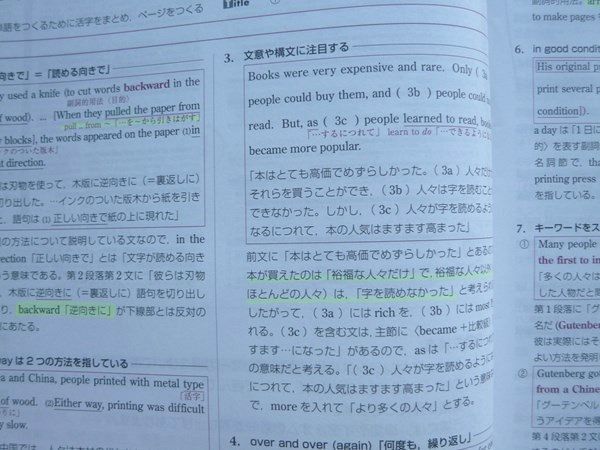 単語をつくるために活字をまとめ，ページをつくる
Title
①
きで」＝「読める向きで」
y used a knife (to cut words backward in the
副詞的用法（目的）
of wood). ... [When they pulled the paper from
pull ... from ～「…を～から引きはがす」
y blocks], the words appeared on the paper (1)in
ンクのついた版木」
t direction.
は刃物を使って，木版に逆向きに（＝裏返しに）
切りした。…インクのついた版木から紙を引き
と，語句は(1)正しい向きで紙の上に現れた」
の方法について説明している文なので，in the
irection「正しい向きで」とは「文字が読める向き
う意味である。第２段落第２文に「彼らは刃物
，木版に逆向きに（＝裏返しに）語句を切り出し
り，backward「逆向きに」が下線部とは反対の
にあたる。
way は２つの方法を指している
a and China, people printed with metal type
「活字」
of wood. (2)Either way, printing was difficult
y slow.
3. 文意や構文に注目する
Books were very expensive and rare. Only ( 3a
people could buy them, and ( 3b ) people could
read. But, as ( 3c ) people learned to read, book
「…するにつれて」 learn to do 「…できるように
became more popular.
「本はとても高価でめずらしかった。（ 3a ）人々だけ
それらを買うことができ，（ 3b ）人々は字を読むこと
できなかった。しかし，（ 3c ）人々が字を読めるよう
なるにつれて，本の人気はますます高まった」
前文に「本はとても高価でめずらしかった」とあるの
本が買えたのは「裕福な人々だけ」で，裕福な人々以外
ほとんどの人々）は，「字を読めなかった」と考えら
したがって，（ 3a ）には rich を，（ 3b ）には most を
れる。（ 3c ）を含む文は，主節に〈became＋比較級
すます…になった」があるので，as は「…するにつ
の意味だと考える。「（ 3c ）人々が字を読めるように
につれて，本の人気はますます高まった」という意味
で，more を入れて「より多くの人々」とする。
4. over and over (again)「何度も，繰り返し」
副詞的用法。
to make pages
6. in good condit
His original p
print several p
condition]).
a day は「１日に
的）を表す副詞
名詞節で，that
printing press
を指している。
7. キーワードをス
① Many people
the first to in
「多くの人々は
した人物だと
第１段落に「グ
名だ (Gutenber
彼は実際にはそ
よい方法を発明
② Gutenberg go
from a Chines
「グーテンベル
うアイデアを得
第４段落第２文